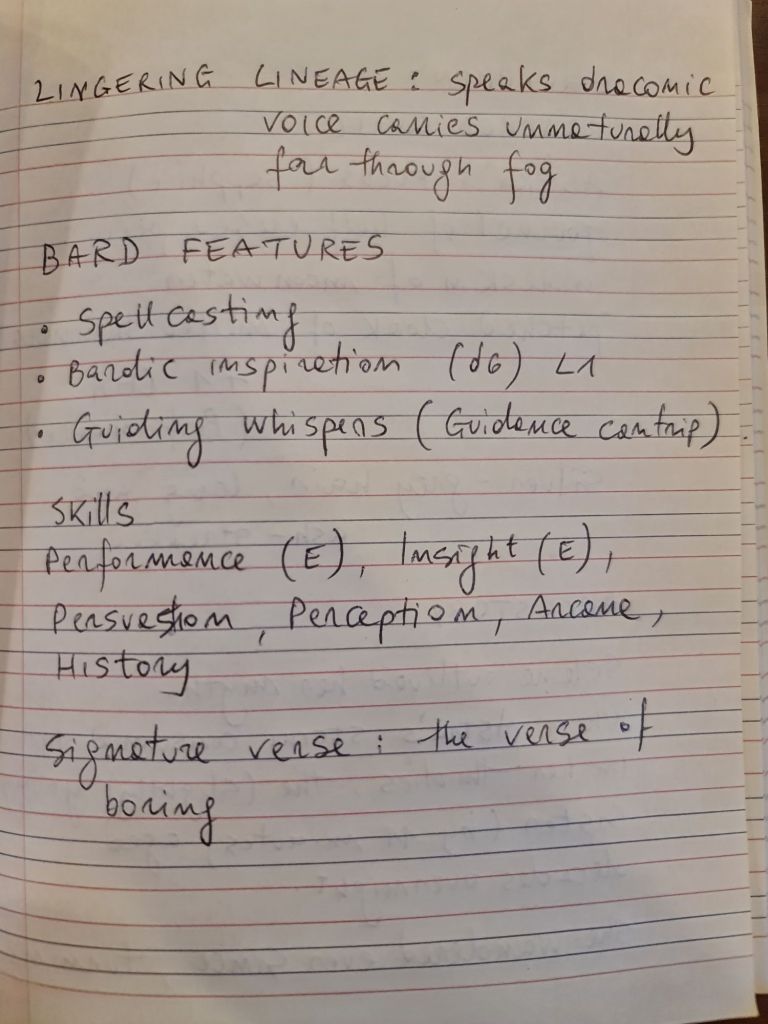 LINGERING LINEAGE : speaks draconic
voice carries unnaturally
far through fog
BARD FEATURES
• Spellcasting
• Bardic inspiration (d6) L1
• Guiding whispers (Guidance cantrip).
Skills
Performance (E), Insight (E),
Persuasion, Perception, Arcane,
History
Signature verse : the verse of
boring